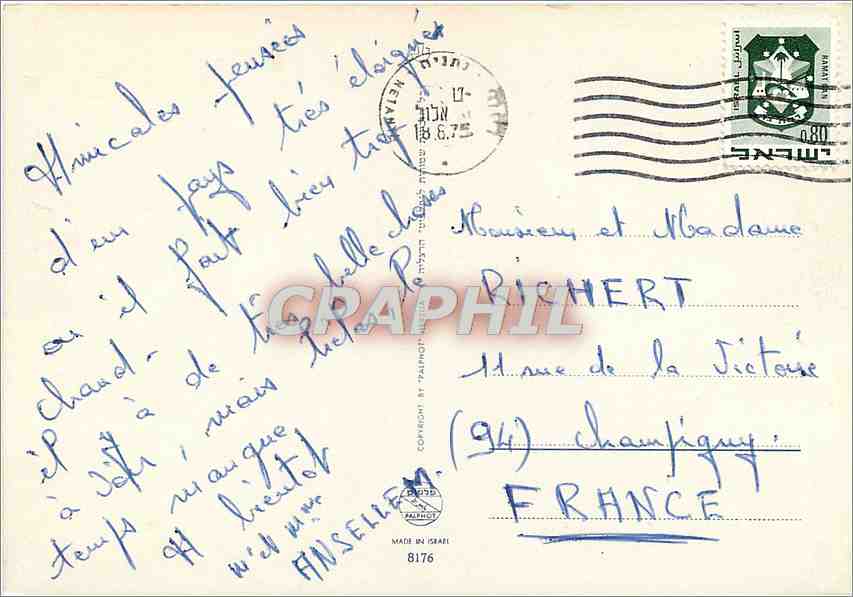 Amicales pensées
d'un pays très éloigné
où il fait bien trop
chaud.
il y à de très belle choses
à voir, mais hélas, le
temps manque
A bientot
m et mme
ANSELLEM.
נתניה
NETANYA
אלול
18.8.75
اسرائيل
ISRAEL
RAMAT GAN
0.80
ישראל
Monsieur et Madame
RICHERT
11 rue de la Victoire
(94) Champigny.
FRANCE
CRAPHIL
COPYRIGHT BY "PALPHOT" HERZLIA
פלפוט
PALPHOT
MADE IN ISRAEL
8176